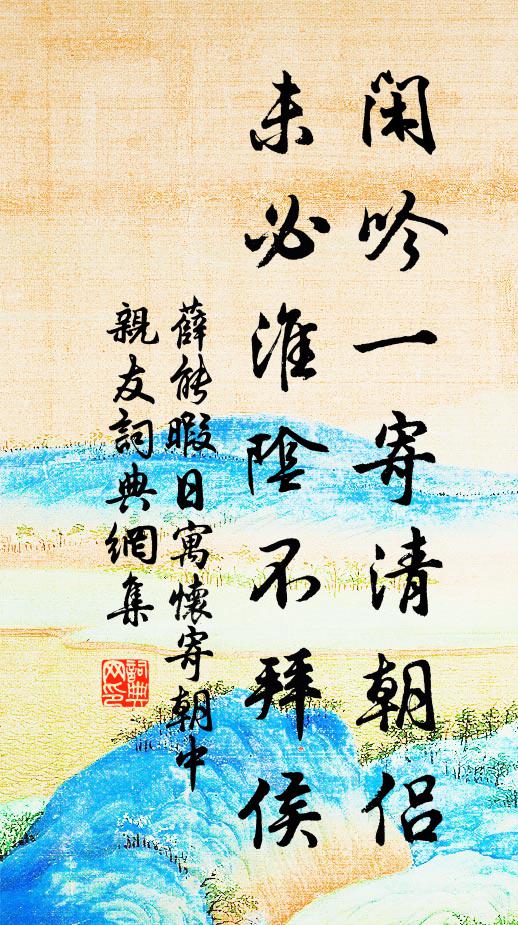 閑吟一寄清朝侶
未必淮陰不拜侯
薛能暇日寓懷寄朝中
親友詞典網集
詞典
网印